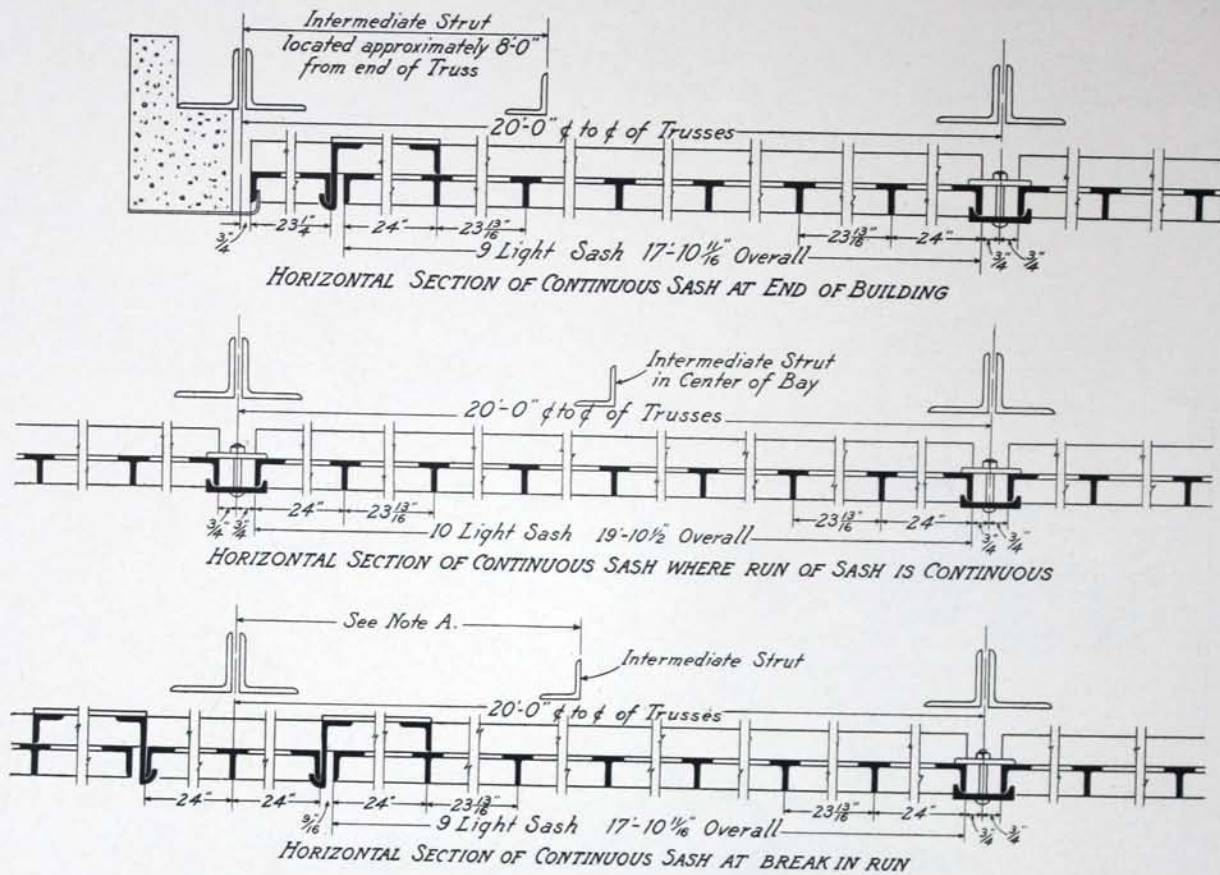 Intermediate Strut
located approximately 8'-0"
from end of Truss
20'-0" ℄ to ℄ of Trusses
3/4" 23 1/4" 24" 23 13/16" 23 13/16" 24" 3/4" 3/4"
9 Light Sash 17'-10 11/16" Overall
HORIZONTAL SECTION OF CONTINUOUS SASH AT END OF BUILDING
Intermediate Strut
in Center of Bay
20'-0" ℄ to ℄ of Trusses
3/4" 3/4" 24" 23 13/16" 23 13/16" 24" 3/4" 3/4"
10 Light Sash 19'-10 1/2" Overall
HORIZONTAL SECTION OF CONTINUOUS SASH WHERE RUN OF SASH IS CONTINUOUS
See Note A.
Intermediate Strut
20'-0" ℄ to ℄ of Trusses
24" 24" 9/16" 24" 23 13/16" 23 13/16" 24" 3/4" 3/4"
9 Light Sash 17'-10 11/16" Overall
HORIZONTAL SECTION OF CONTINUOUS SASH AT BREAK IN RUN